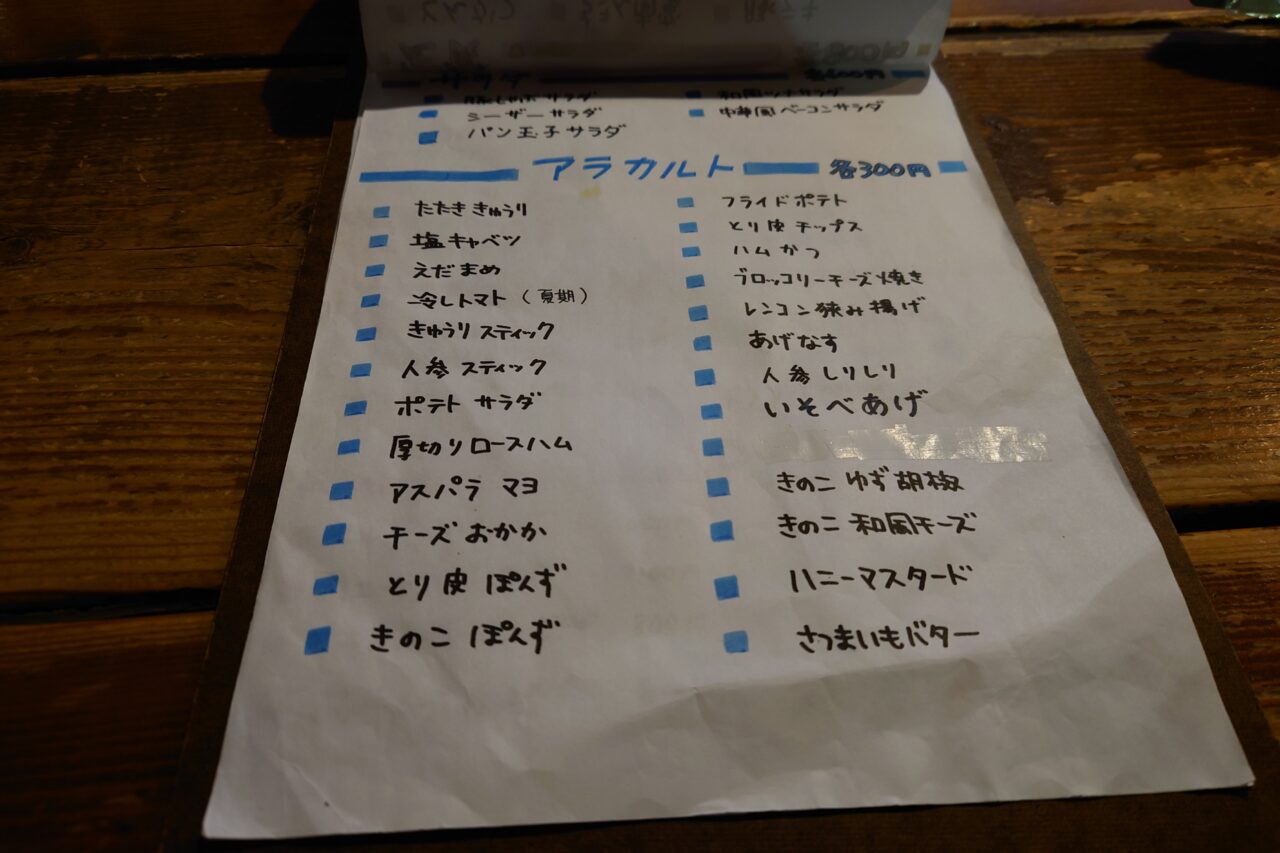 サラダ 各600円
豚しゃぶサラダ 和風ツナサラダ
シーザーサラダ 中華風ベーコンサラダ
パン玉子サラダ
アラカルト 各300円
たたききゅうり フライドポテト
塩キャベツ とり皮チップス
えだまめ ハムかつ
冷しトマト（夏期） ブロッコリーチーズ焼き
きゅうりスティック レンコン狭み揚げ
人参スティック あげなす
ポテトサラダ 人参しりしり
厚切りロースハム いそべあげ
アスパラマヨ きのこゆず胡椒
チーズおかか きのこ和風チーズ
とり皮ぽんず ハニーマスタード
きのこぽんず さつまいもバター